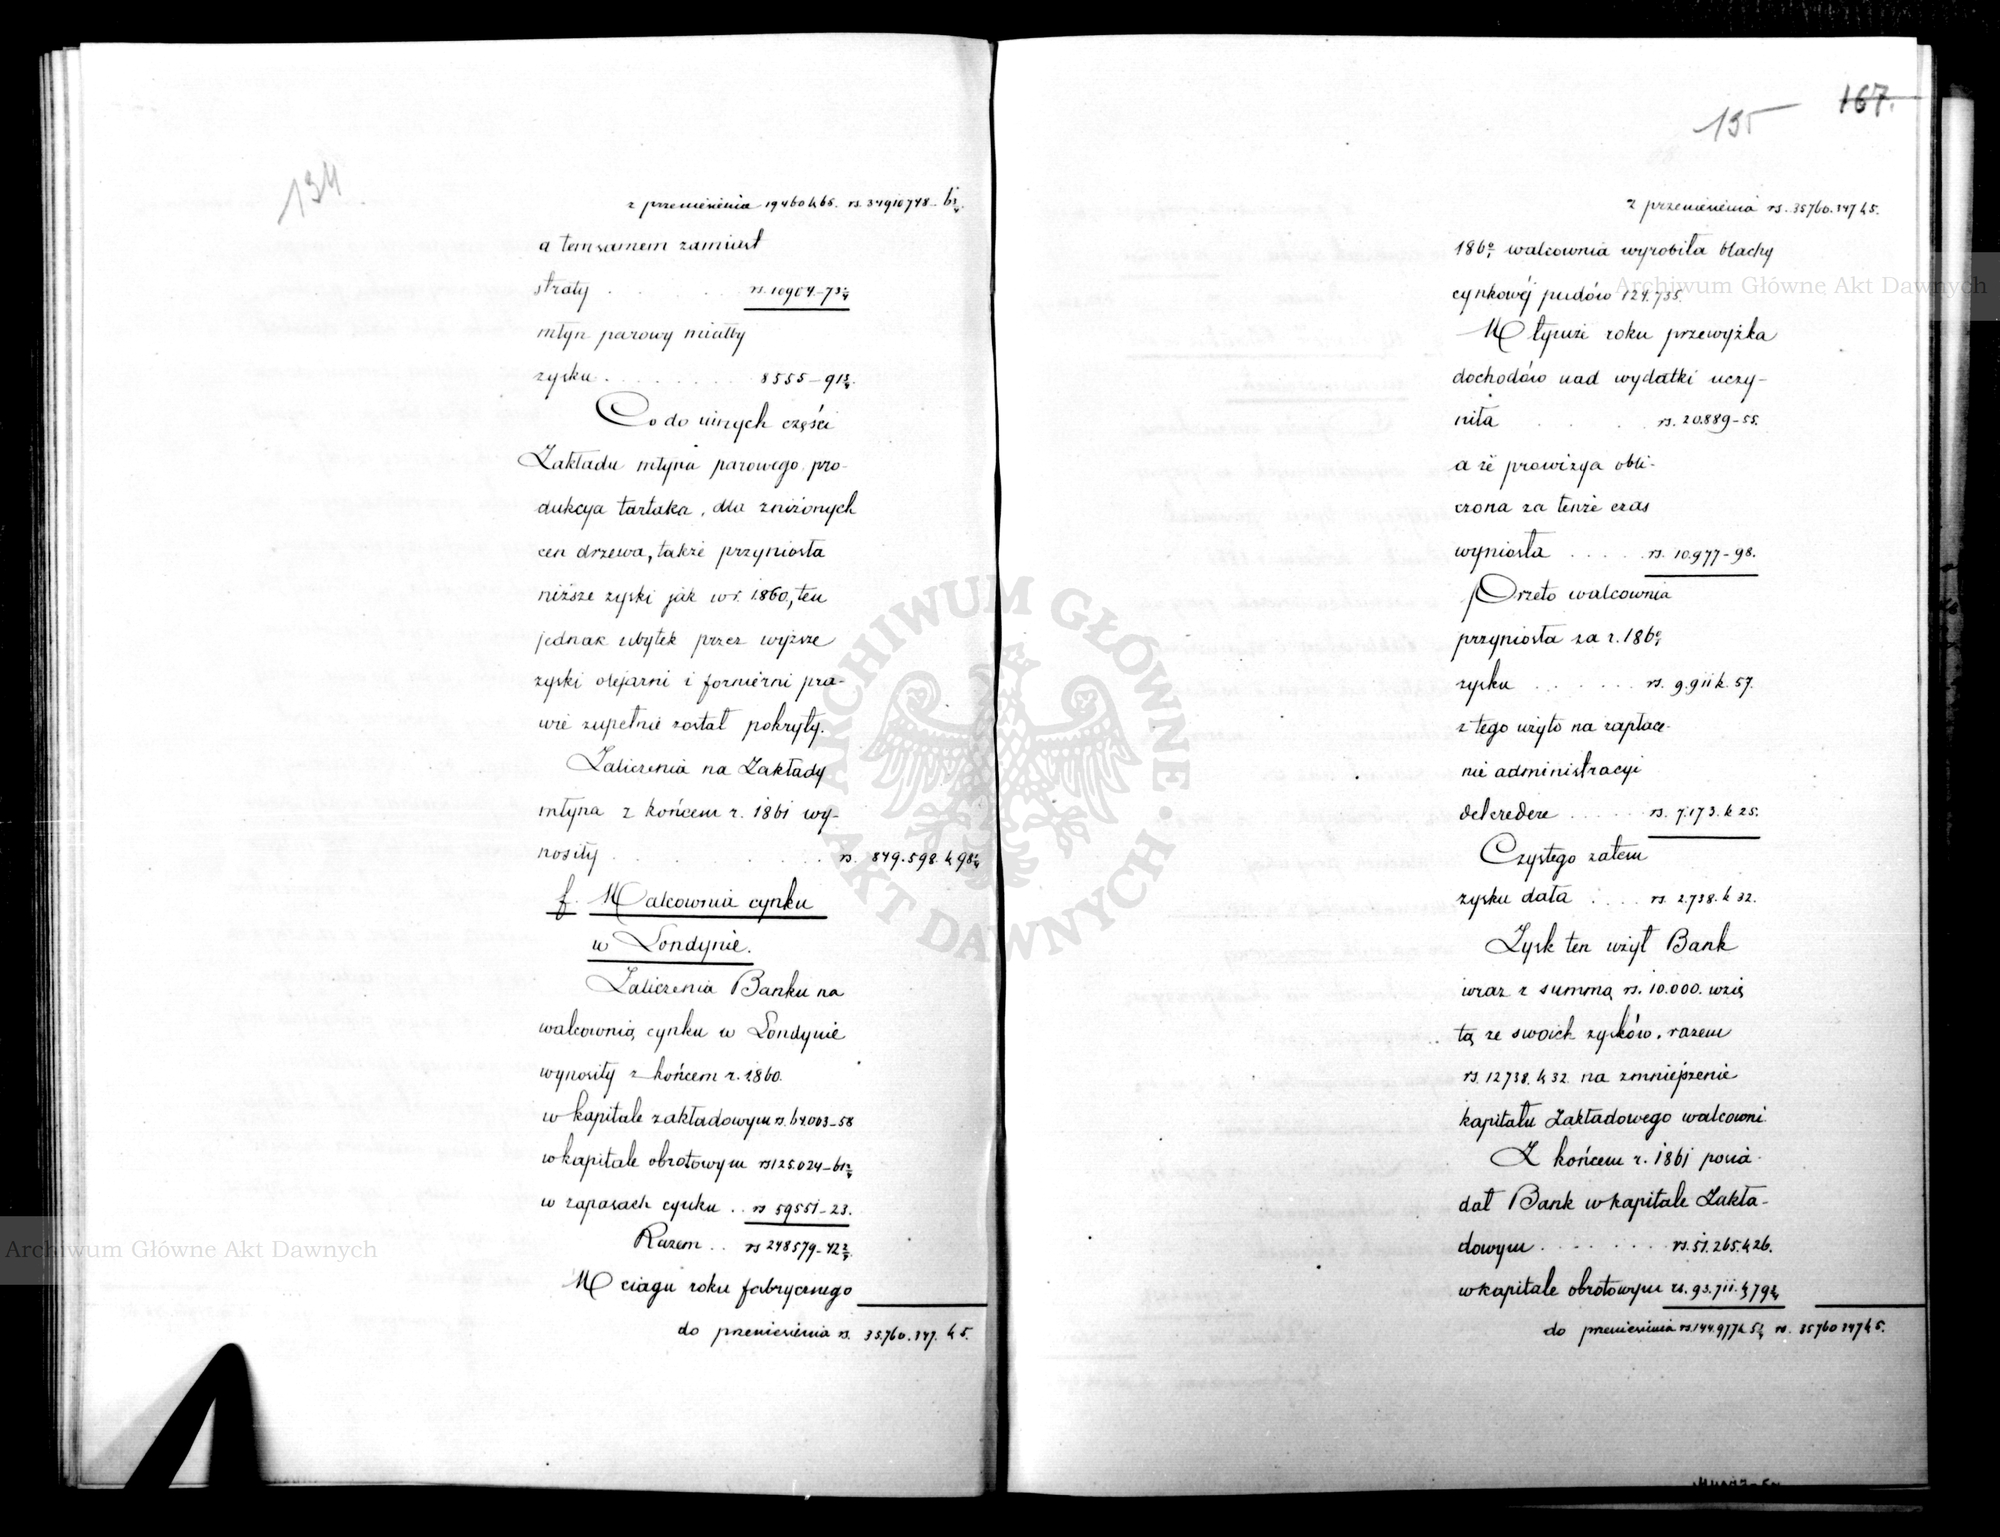 134
z przeniesienia 19460 k 65. rs. 34910748 – 6 3/4.
a temsamem zamiast
straty . . . . rs. 10904–73 1/4
młyn parowy miałby
zysku . . . . . . . . 8555–91 3/4.
Co do innych części
Zakładu młyna parowego, pro-
dukcya tartaka, dla zniżonych
cen drzewa, także przyniosła
niższe zyski jak w r. 1860, ten
jednak ubytek przez wyższe
zyski olejarni i fornierni pra-
wie zupełnie został pokryty.
Zaliczenia na Zakłady
młyna z końcem r. 1861 wy-
nosiły . . . . . . . . rs. 849.598. k 98 1/4
f. Walcownia cynku
w Londynie.
Zaliczenia Banku na
walcownią cynku w Londynie
wynosiły z końcem r. 1860.
w kapitale zakładowym rs. 64.003–58
w kapitale obrotowym rs 125.024–61 2/4
w zapasach cynku . . rs 59551–23.
Razem . . rs 248579–42 2/4.
W ciągu roku fabrycznego
do przeniesienia rs. 35.760.347. k 5.
135
167.
z przeniesienia rs. 35760.347 k 5.
186 0/1 walcownia wyrobiła blachy
cynkowéj pudów 124.735.
W tymże roku przewyżka
dochodów nad wydatki uczy-
niła . . . . . rs. 20.889–55.
a że prowizya obli-
czona za tenże czas
wyniosła . . . . . rs. 10.977–98.
Przeto walcownia
przyniosła za r. 186 0/1
zysku . . . . . . . rs. 9.911 k. 57.
z tego użyto na zapłace-
nie administracyi
delcredere . . . . . . rs. 7.173. k 25.
Czystego zatem
zysku dała . . . . rs. 2.738. k 32.
Zysk ten użył Bank
wraz z summą rs. 10.000. wzię
tą ze swoich zysków, razem
rs. 12738. k 32. na zmniejszenie
kapitału Zakładowego walcowni.
Z końcem r. 1861 posia-
dał Bank w kapitale Zakła-
dowym . . . . . . . rs. 51.265. k 26.
w kapitale obrotowym rs. 93.711. k 79 2/4
do przeniesienia rs. 144.977 k. 5 2/4 rs. 35760 347 k 5.
Archiwum Główne Akt Dawnych
Archiwum Główne Akt Dawnych
ARCHIWUM GŁÓWNE · AKT DAWNYCH ·